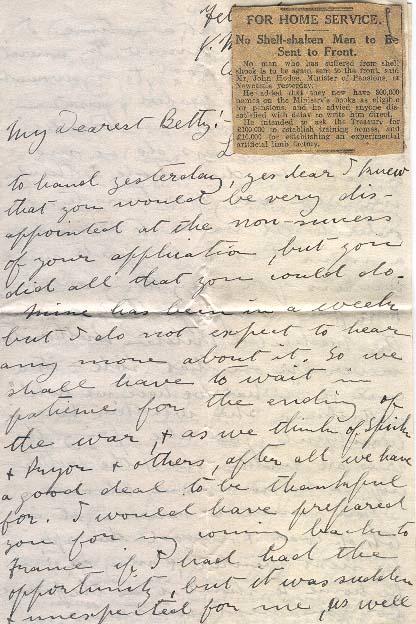 Fe
FOR HOME SERVICE.
No Shell-shaken Men to Be
Sent to Front.
No man who has suffered from shell
shock is to be again sent to the front, said
Mr. John Hodge, Minister of Pensions, at
yesterday.
He added that they now have 800,000
names on the Ministry's books as eligible
for pensions, and he advised anyone dis-
satisfied with delay to write him direct.
He intended to ask the Treasury for
£100,000 to establish training homes, and
£10,000 for establishing an experimental
artificial limb factory.
My Dearest Betty!-
to hand yesterday, yes dear I knew
that you would be very dis-
appointed at the non-success
of your application, but you
did all that you could do.
Mine has been in a week
but I do not expect to hear
any more about it. So we
shall have to wait in
patience for the ending of
the war, & as we think of
& Pryor & others, after all we have
a good deal to be thankful
for. I would have prepared
you for my coming back to
France if I had had the
opportunity, but it was sudden
& unexpected for me, as well